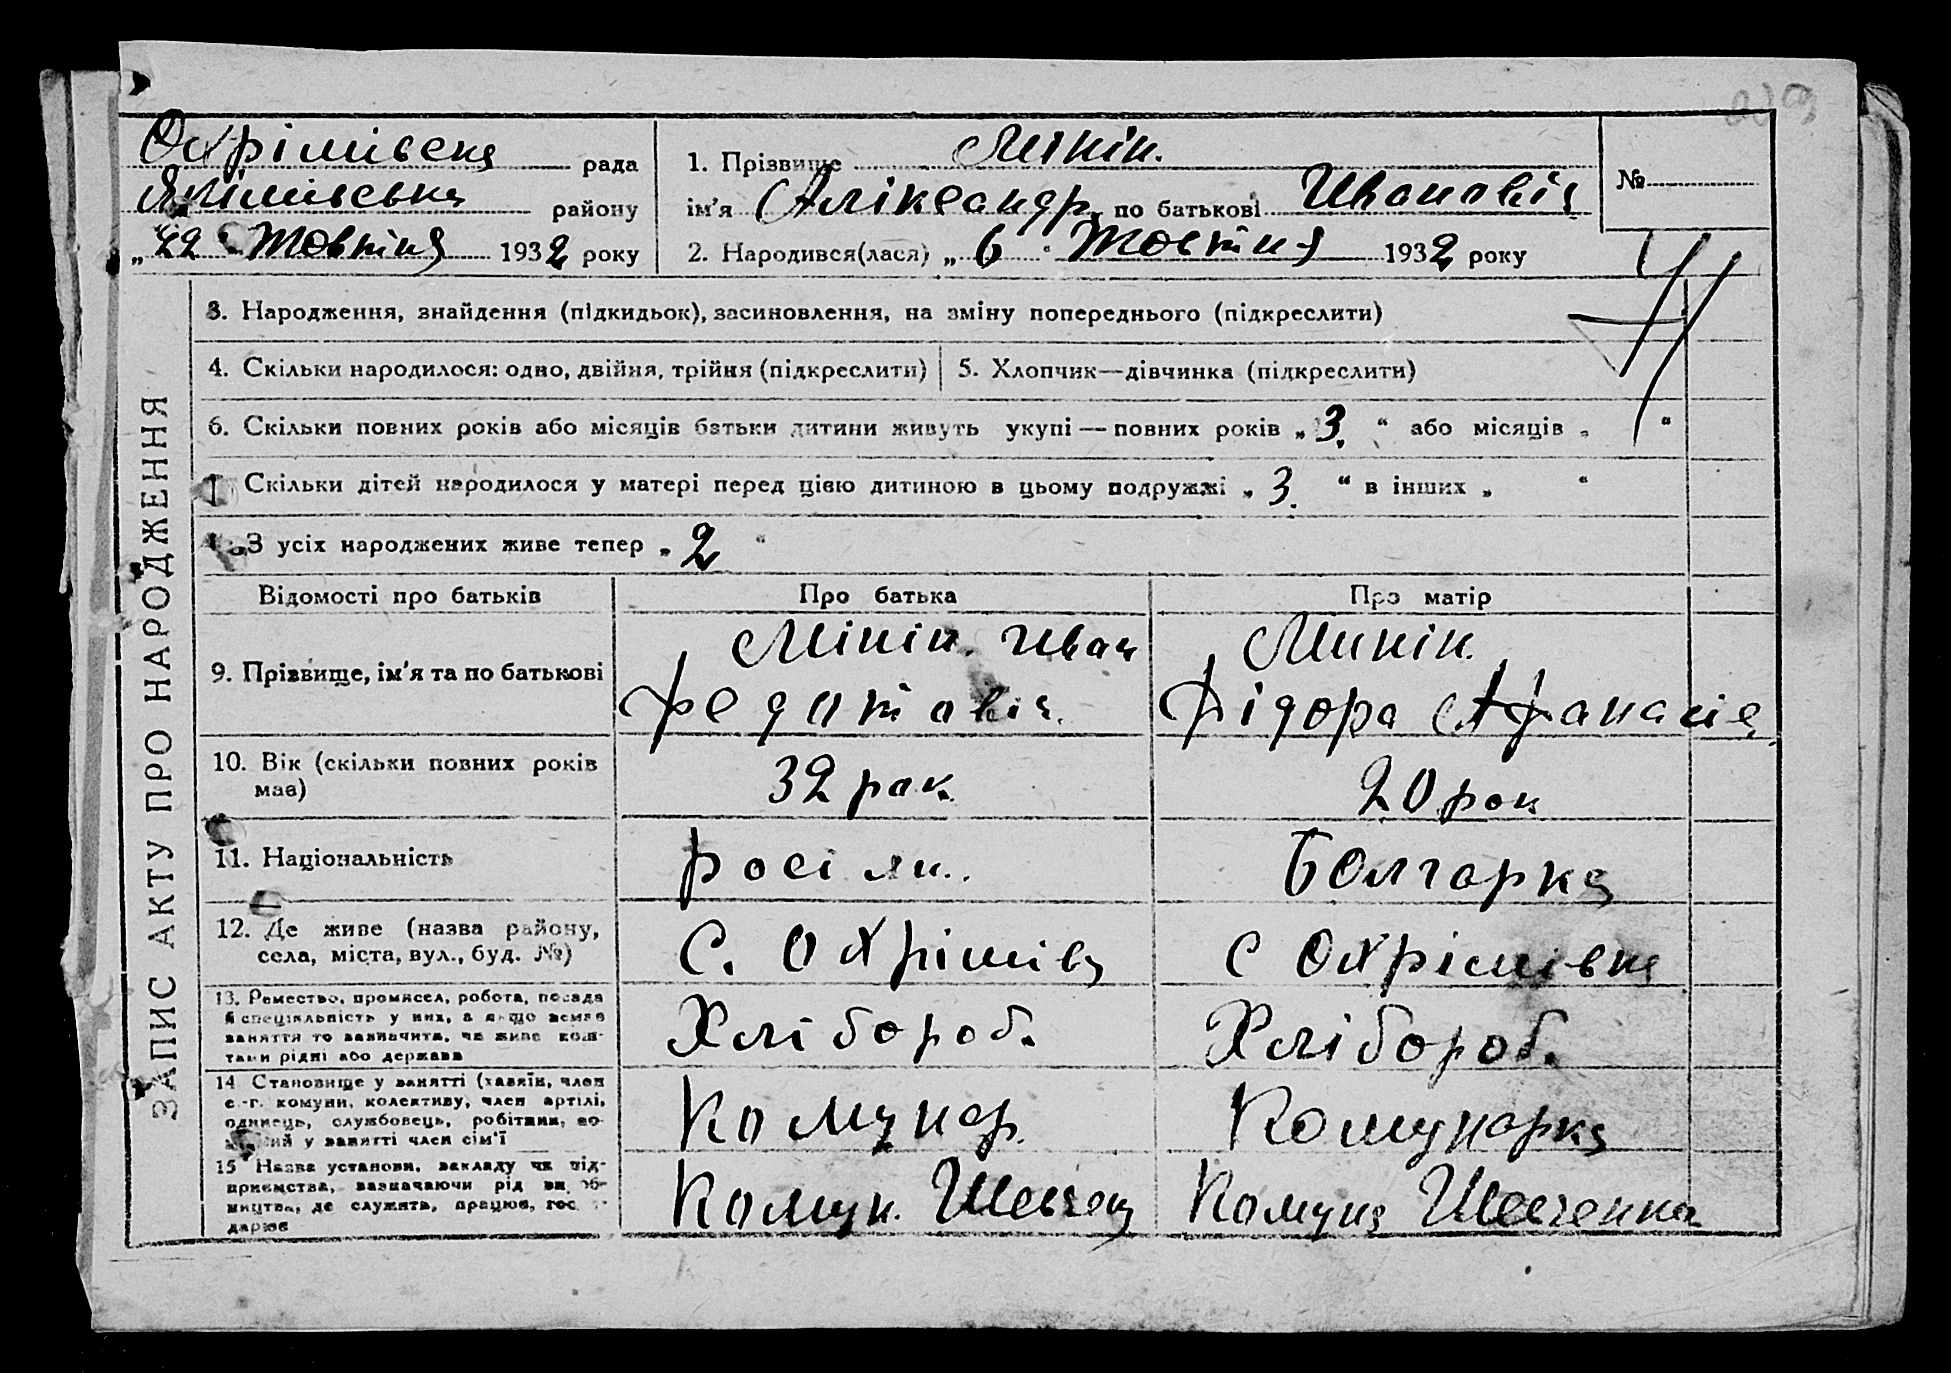 Охрімівська рада
Якімівська району
„22“ Жовтня 1932 року
1. Прізвище Мінін.
ім'я Аліксандр по батькові Ивановіч
2. Народився(лася) „6“ Жовтня 1932 року
№
ЗАПИС АКТУ ПРО НАРОДЖЕННЯ
3. Народження, знайдення (підкидьок), засиновлення, на зміну попереднього (підкреслити)
4. Скільки народилося: одно, двійня, трійня (підкреслити) 5. Хлопчик—дівчинка (підкреслити)
6. Скільки повних років або місяців батьки дитини живуть укупі — повних років „3.“ або місяців „ “
Скільки дітей народилося у матері перед цією дитиною в цьому подружжі „3.“ в інших „ “
З усіх народжених живе тепер „2“
Відомості про батьків Про батька Про матір
9. Прізвище, ім'я та по батькові
Мінін. Иван
Федатовіч.
Минін.
Фідора Афанасіе
10. Вік (скільки повних років
має)
32 рок.
20 рок
11. Національність росіян.. Болгарка
12. Де живе (назва району,
села, міста, вул., буд. №)
С. Охрімівка
С Охрімівка
13. Ремество, промисел, робота, посада
й спеціяльність у них, а якщо немає
заняття то зазначити, чи живе кош-
тами рідні або держава
Хлібороб.
Хлібороб.
14 Становище у занятті (хазяїн, член
с.-г. комуни, колективу, член артілі,
одинець, службовець, робітник, по-
у занятті член сім'ї
Комунар.
Комунарка
15 Назва установи, закладу чи під-
приємства, зазначаючи рід вироб-
ництва, де служить, працює, госпо-
дарює
Комун. Шевченка
Комуна Шевченка